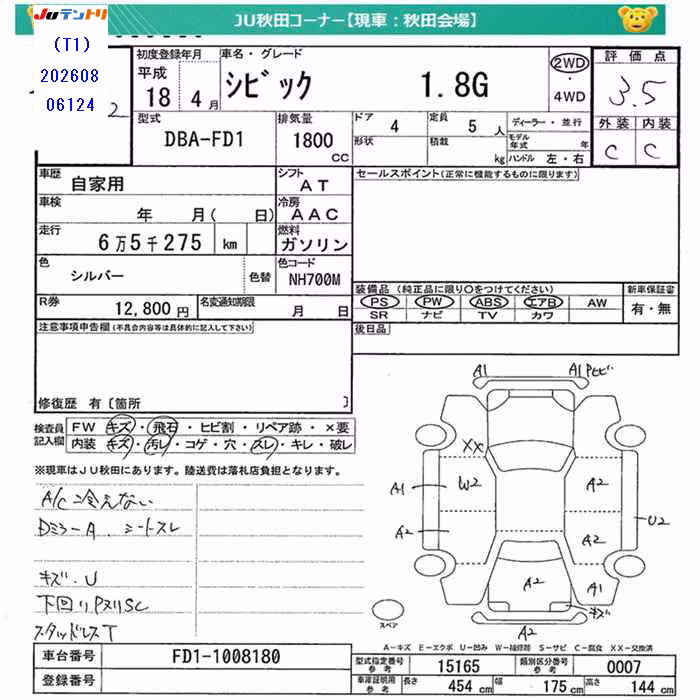 JUテントリ JU秋田コーナー【現車：秋田会場】
(T1)
202608
06124
初度登録年月 車名・グレード 評価点
平成 18 4月 シビック 1.8G 2WD・4WD 3.5
型式 排気量 ドア 4 定員 5人 ディーラー・並行 外装 内装
DBA-FD1 1800 CC 形状 積載 kg モデル年式 年 ハンドル 左・右 C C
車歴 自家用 シフト AT セールスポイント(正常に機能するものに限ります)
車検 年 月( 日) 冷房 AAC
走行 6万5千275 km 燃料 ガソリン
色 シルバー 色替 色コード NH700M 装備品(純正品に限り○をつけてください) 新車保証書
R券 12,800円 名変通知期限 月 日 PS PW ABS エアB AW 有・無
SR ナビ TV カワ
注意事項申告欄(不具合内容等は具体的に記入して下さい) 後日品
修復歴 有〔箇所 〕
検査員記入欄 FW キズ・飛石・ヒビ割・リペア跡・×要
内装 キズ・汚レ・コゲ・穴・スレ・キレ・破レ
※現車はJU秋田にあります。陸送費は落札店負担となります。
A/C冷えない
Dミラ-A. シートスレ
キズ・U
下回りPヌリSC
スタッドレスT
A1 A1Pヒビ
XX
W2 A2
A1
U2
A2 A2
A2 A1
キズ
A2
スペア
A-キズ E-エクボ U-凹み W-補修跡 S-サビ C-腐食 XX-交換済
車台番号 FD1-1008180 型式指定番号参考 15165 類別区分番号参考 0007
登録番号 車庫証明用参考 長さ 454cm 幅 175cm 高さ 144cm